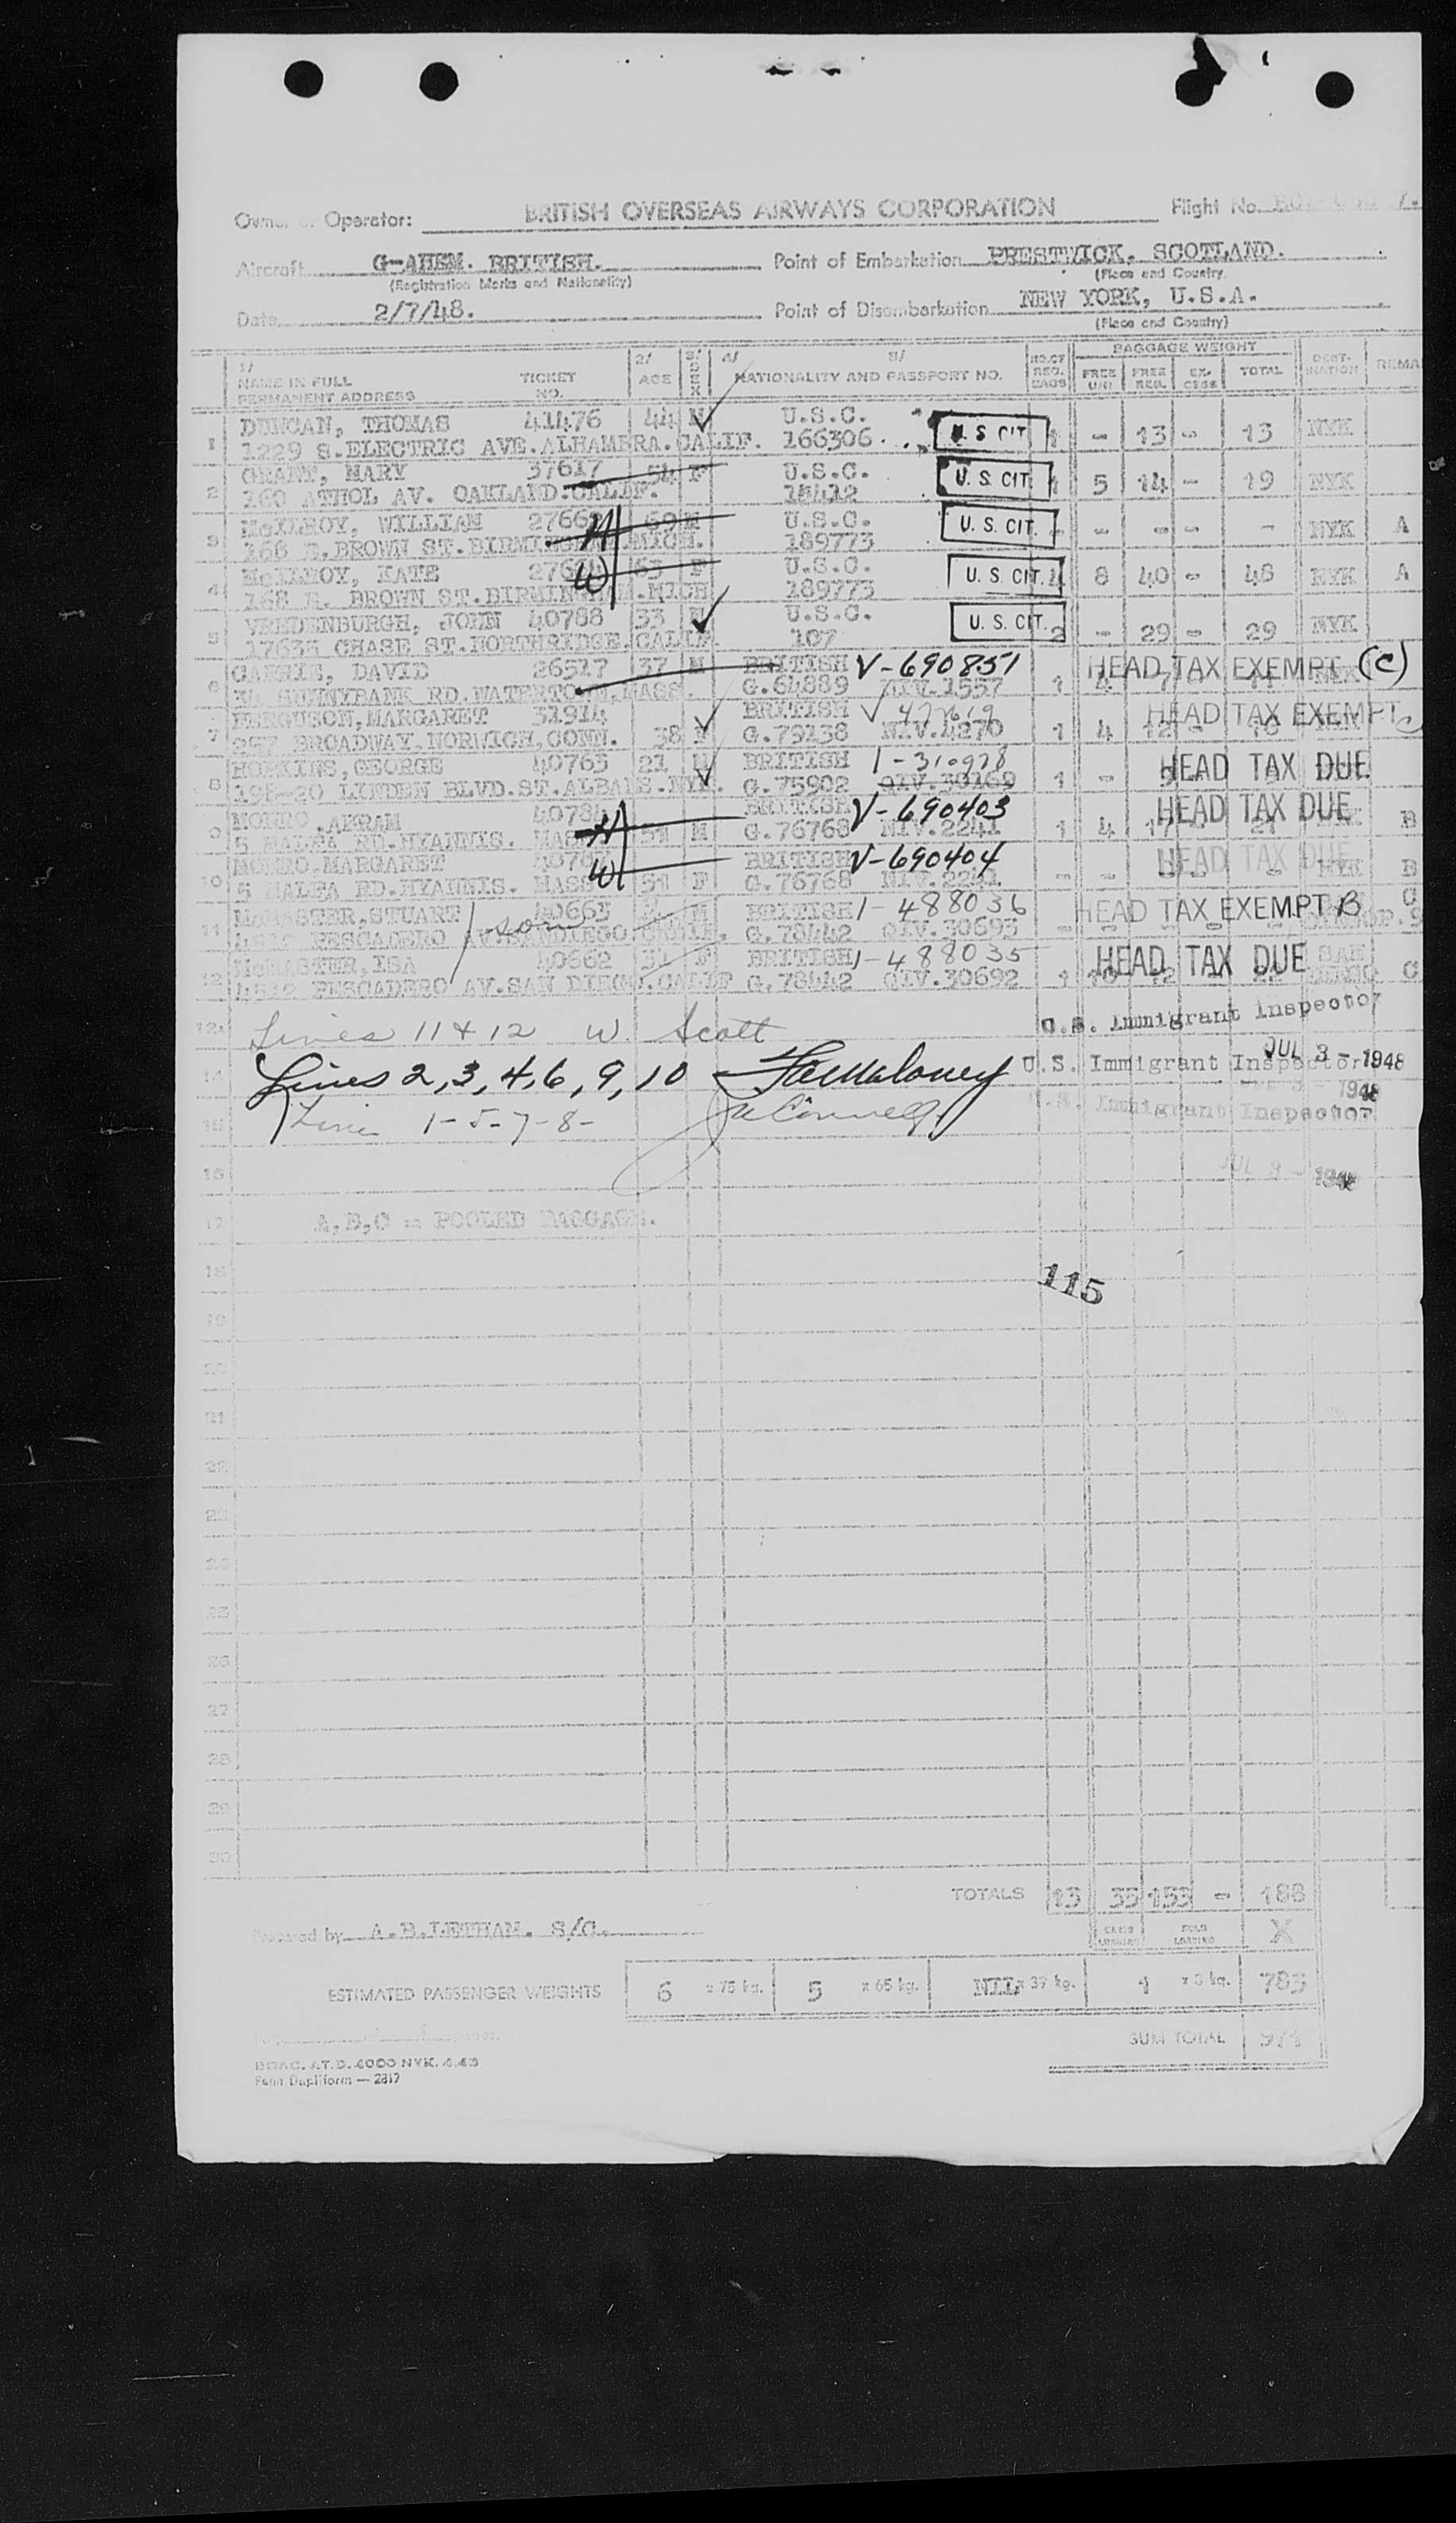 Owner or Operator: BRITISH OVERSEAS AIRWAYS CORPORATION Flight No.
Aircraft G-AHEM. BRITISH. Point of Embarkation PRESTWICK, SCOTLAND.
(Registration Marks and Nationality) (Place and Country)
Date 2/7/48. Point of Disembarkation NEW YORK, U.S.A.
(Place and Country)
1/ NAME IN FULL PERMANENT ADDRESS TICKET NO. 2/ AGE 3/ SEX 4/ 5/ NATIONALITY AND PASSPORT NO. NO.OF REG. BAGS BAGGAGE WEIGHT FREE U/H FREE REG. EX-CESS TOTAL DEST-INATION REMA
DUNCAN, THOMAS 41476 44 M U.S.C.
1 1229 S.ELECTRIC AVE.ALHAMBRA.CALIF. 166306. U.S CIT 1 - 13 - 13 NYK
GRANT, MARY 37617 54 F U.S.C.
2 160 ATHOL AV. OAKLAND.CALIF. 18412 U. S. CIT. 1 5 14 - 19 NYK
McILROY, WILLIAM 69 M U.S.C.
3 168 E.BROWN ST.BIRMINGHAM.MICH. 189773 U. S. CIT. - - - - - NYK A
McILROY, KATE 63 F U.S.C.
4 168 E. BROWN ST.BIRMINGHAM.MICH 189773 U. S. CIT. 4 8 40 - 48 NYK A
VREDENBURGH, JOHN 40788 33 M U.S.C.
5 17635 CHASE ST.NORTHRIDGE.CALIF. 107 U. S. CIT. 2 - 29 - 29 NYK
DAVID 26517 37 M BRITISH V-690851 HEAD TAX EXEMPT (C)
6 SUNNYBANK RD.WATERTOWN.MASS. G.64889 NIV.1557 1 4 7
FERGUSON,MARGARET 31914 BRITISH HEAD TAX EXEMPT C
7 297 BROADWAY.NORWICH,CONN. 38 F G.79138 NIV.4270 1 4 12 - 16 NYK
HOPKINS,GEORGE 40765 21 M BRITISH 1-310978 HEAD TAX DUE
8 198-20 LINDEN BLVD.ST.ALBANS.NYK. G.75902 QIV.30169 1 -
MONRO, BRITISH V-690403 HEAD TAX DUE
9 5 MALFA RD.HYANNIS. MASS H 51 M G.76768 NIV.2241 1 4 17 - 21 B
MONRO,MARGARET BRITISH V-690404 HEAD TAX DUE
10 5 MALFA RD.HYANNIS. MASS W 51 F G.76768 NIV.2242 - - - - - NYK B
McMASTER,STUART son 40663 M BRITISH 1-488036 HEAD TAX EXEMPT B C
11 4512 PESCADERO AV.SANDIEGO.CALIF. G.78442 QIV.30693
McMASTER,ISA 40662 34 F BRITISH 1-488035 HEAD TAX DUE SAN DIEGO
12 4512 PESCADERO AV.SAN DIEGO.CALIF G.78442 QIV.30692 1 10 12 C
Lines 11 & 12 W. Scott U.S. Immigrant Inspector
Lines 2, 3, 4, 6, 9, 10 U.S. Immigrant Inspector JUL 3 - 1948
Line 1-5-7-8- U.S. Immigrant Inspector 1948
16 1948
17 A,B,C = POOLED BAGGAGE.
18
115
19
20
21
22
23
24
25
26
27
28
29
30
TOTALS 13 35 153 - 188
Prepared by A.B.LETHAM. S/C. X
ESTIMATED PASSENGER WEIGHTS 6 x 75 kg. 5 x 65 kg. NIL x 39 kg. 1 x 8 kg. 783
SUM TOTAL 971
BOAC. AT.D. 4000 NYK. 4.48
Penn Dupliform — 2817